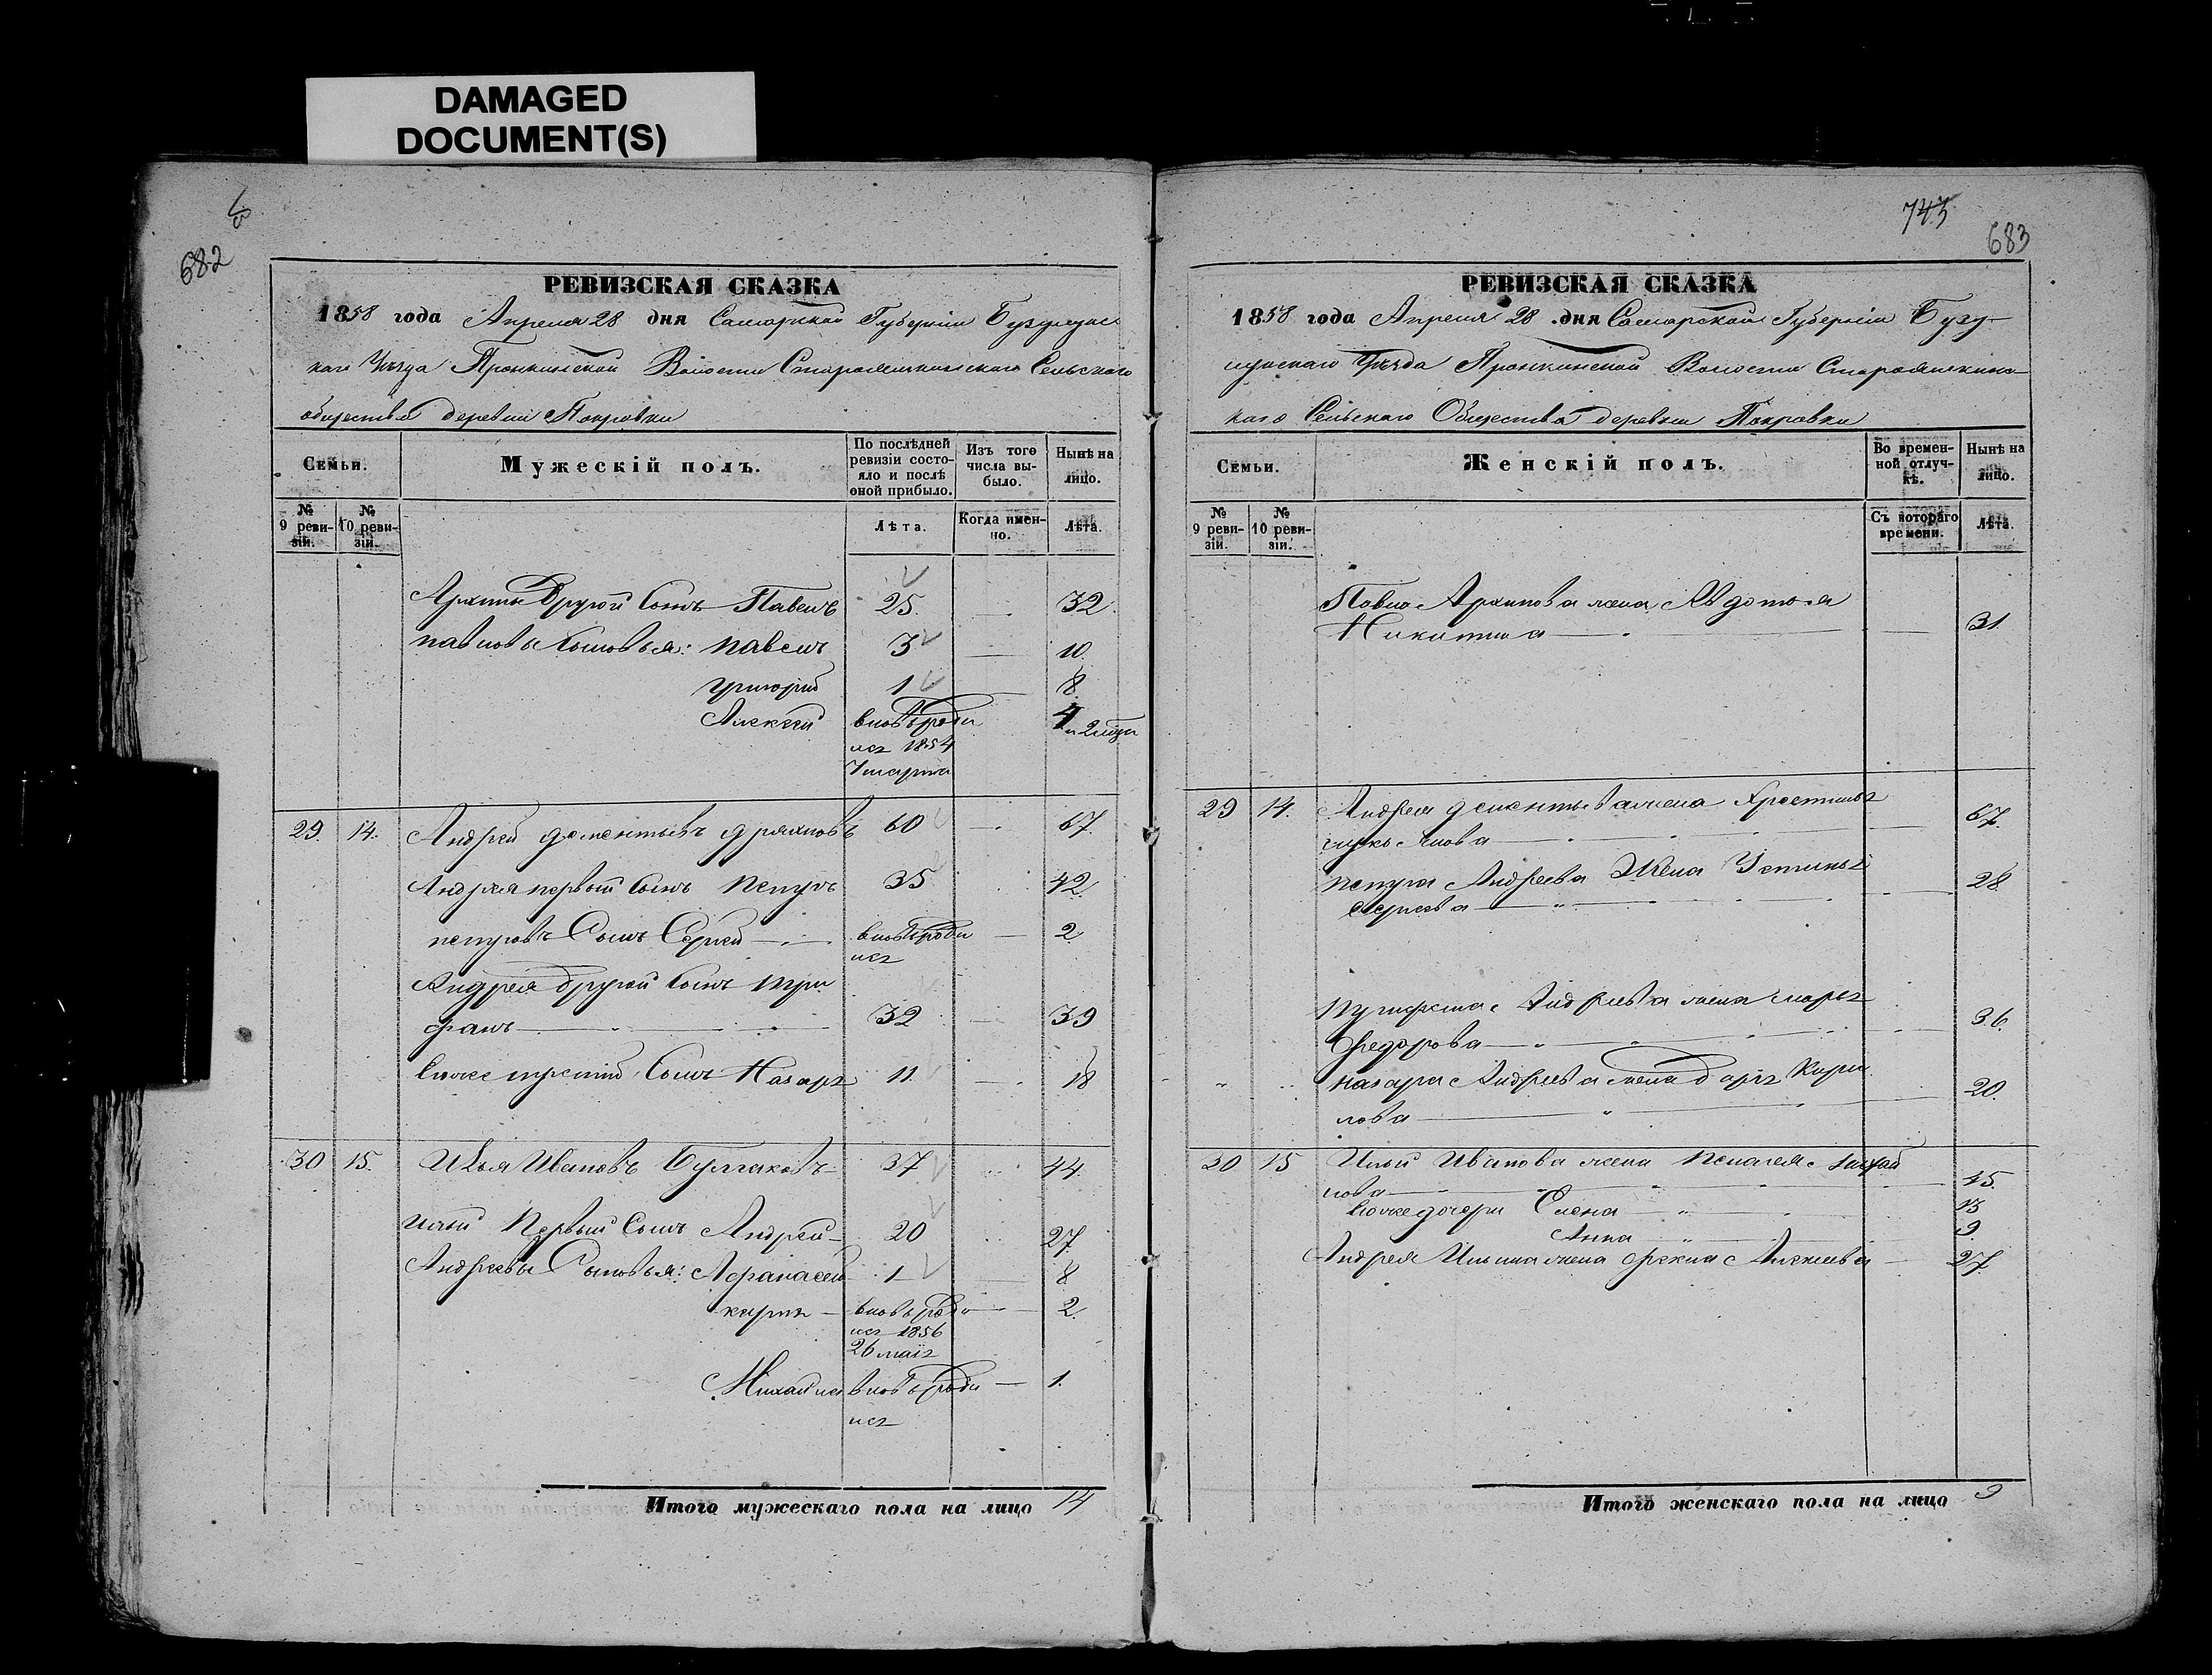 DAMAGED
DOCUMENT(S)
682
РЕВИЗСКАЯ СКАЗКА
1858 года Апреля 28 дня Самарской Губерніи Бузулукс
каго Уѣзда Пронкинской Волости Староямскинскаго Сельскаго
общества деревни Покровки
Семьи.
Мужескій полъ.
По послѣдней ревизіи состояло и послѣ оной прибыло.
Изъ того числа выбыло.
Нынѣ на лицо.
№ 9 ревизіи.
№ 10 ревизіи.
Лѣта.
Когда именно.
Лѣта.
Архипа Другой Сынъ Павелъ 25 32
павловы Сыновья: павелъ 3 10
григорій 1 8
Алексей вновь роди 4
лсz 1854
7 марта
29 14. Андрей дементьевъ 60 67
Андрея первый Сынъ петръ 35 42
петровъ Сынъ Сергей вновь роди 2
лсz
Андрея другой Сынъ три
фанъ 32 39
Еинже третій Сынъ Назарz 11 18
30 15. Илья Ивановъ Булгаковъ 37 44
ильи Первый Сынъ Андрей 20 27
Андреевы Сыновья: Афанасей 1 8
карпъ вновь роди 2
лсz 1856
26 маіz
Михаила вновь роди 1.
лсz
Итого мужескаго пола на лицо 14
743
683
РЕВИЗСКАЯ СКАЗКА
1858 года Апреля 28 дня Самарской Губерніи Бузу-
лукскаго Уѣзда Пронкинской Волости Староямскинс
каго Сельскаго Общества деревни Покровки
Семьи.
Женскій полъ.
Во временной отлучкѣ.
Нынѣ на лицо.
№ 9 ревизіи.
№ 10 ревизіи.
Съ котораго времени.
Лѣта.
Павла Архипова жена Авдотья
Никитина 31.
29 14. Андрея дементьева жена Хрестинья
67.
петра Андреева Жена Устинья
Сергеева 28
Андреева жена марьz
Федорова 36.
назара Андреева жена дарьz Кири
лова 20.
30 15 Ильи Иванова жена пелагея
лова 45.
Еинже дочери Елена 13
Анна 9
Андрея Ильина жена фекла Алексеева 27
Итого женскаго пола на лицо 9